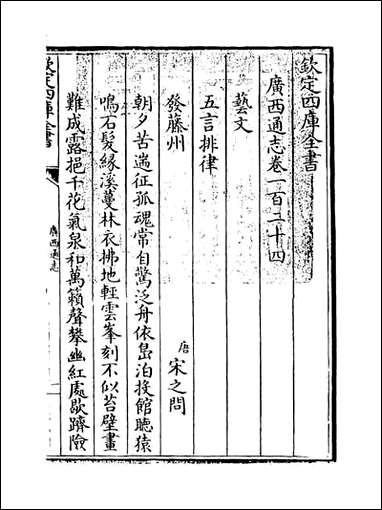 欽定四庫全書
廣西通志卷一百二十四
藝文
五言排律
發藤州
唐 宋之問
朝夕苦遄征孤魂常自驚泛舟依島泊投館聽猿
鳴石髮縁溪蔓林衣拂地輕雲峯刻不似苔壁畫
難成露挹千花氣泉和萬籟聲攀幽紅處歇躋險
欽定四庫全書
廣西通志